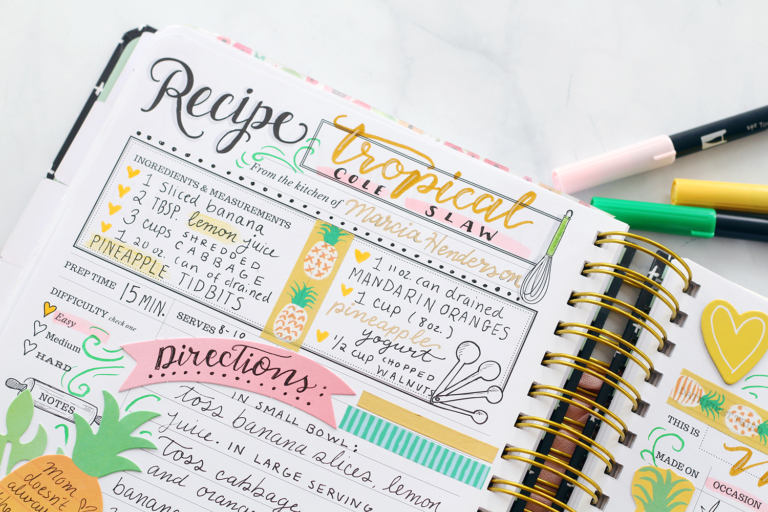 Recipe
tropical
COLE SLAW
From the kitchen of Marcia Henderson
INGREDIENTS & MEASUREMENTS
1 sliced banana
2 TBSP. lemon juice
3 cups SHREDDED CABBAGE
1 20 oz. can of drained
PINEAPPLE TIDBITS
1 11oz can drained
MANDARIN ORANGES
1 CUP (8oz.)
pineapple
yogurt
1/2 CUP CHOPPED
WALNUTS
PREP TIME 15 MIN.
SERVES 8-10
DIFFICULTY check one
Easy
Medium
HARD
NOTES
Directions:
IN SMALL BOWL:
toss banana slices, lemon
juice. IN LARGE SERVING
Toss cabbage
and orang
banana
mom
doesn't
always
THIS IS
MADE ON
OCCASION